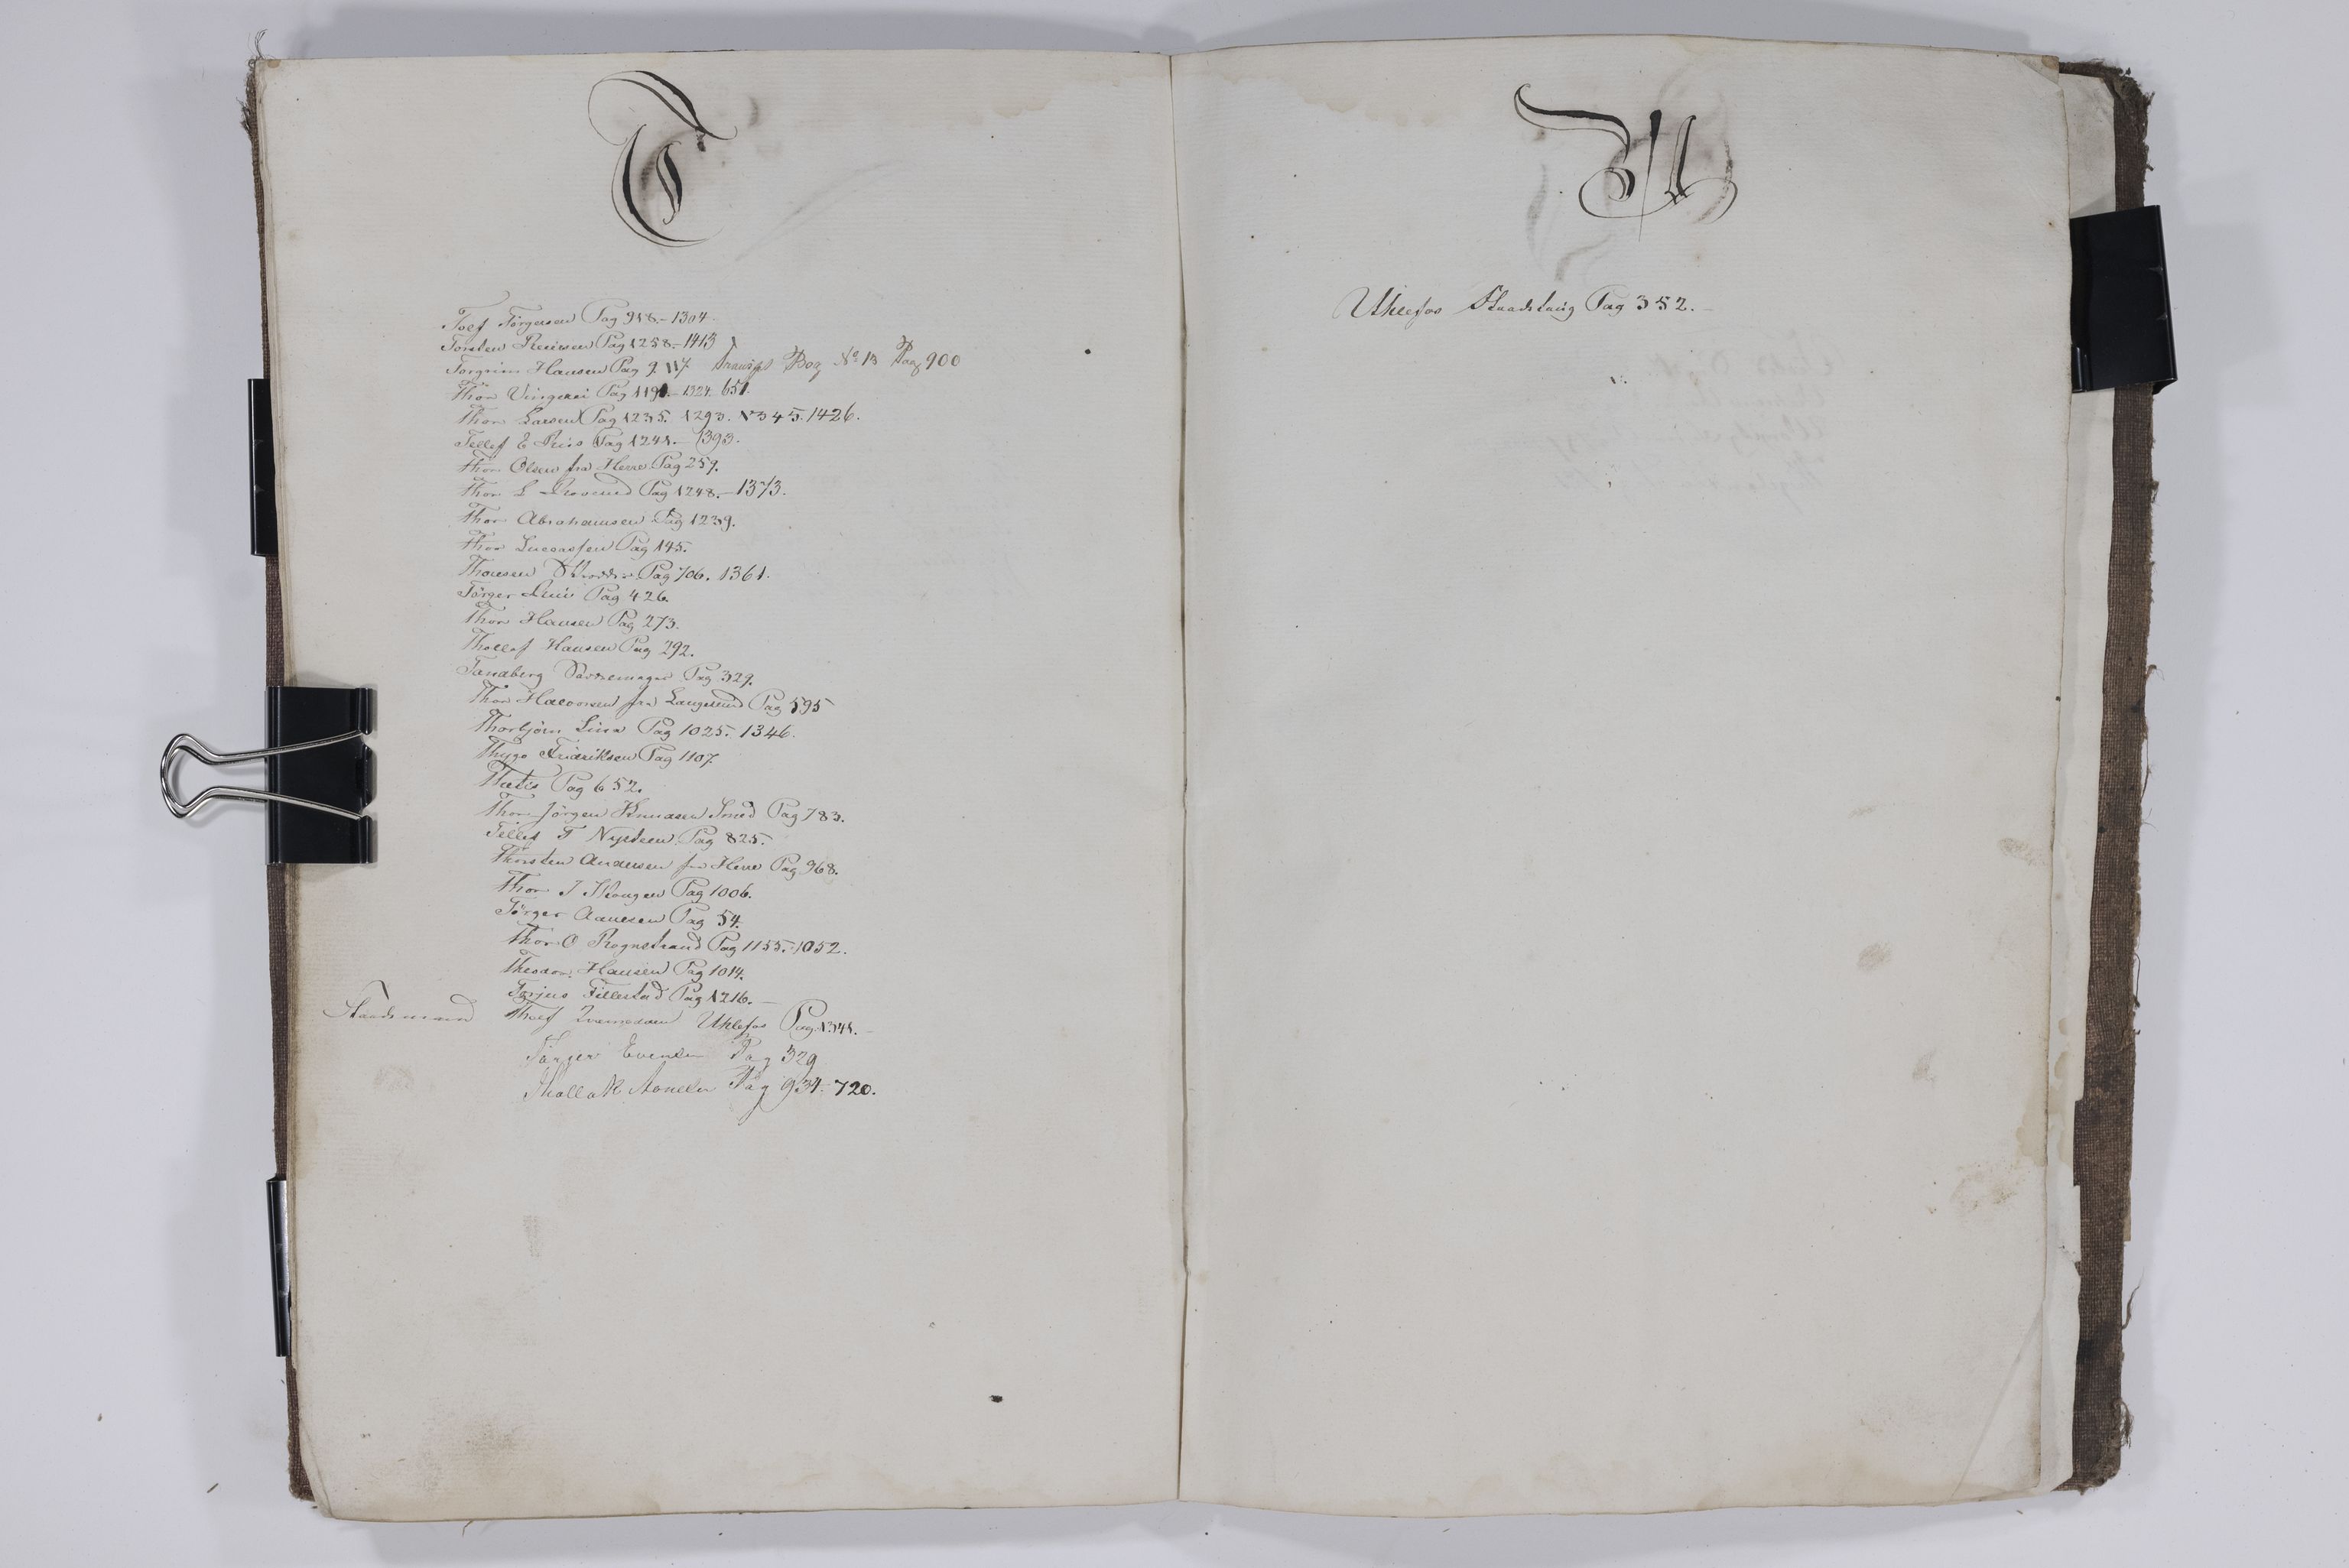 T
Tolf Törgersen Pag 958.-1304.
Torsten Pag 1258.-1413
Torgrim Hansen Pag 9. 117. Transp Bog No 13 Pag 900
Thor Pag 1191.-1324. 651.
Thor Larsen Pag 1235. 1293. 1345. 1426.
Tellef E Riis Pag 1241.- 1393.
Thor Olsen fra Herre Pag 259.
Thor L Pag 1248.-1373.
Thor Abrahamsen Pag 1239.
Thor Lucassen Pag 145.
Thomsen Pag 706. 1361.
Törger Pag 426.
Thor Hansen Pag 273.
Thollef Hansen Pag 292.
Tandberg Pag 329.
Thor Halvorsen fra Langesund Pag 595
Thorbjörn Lien Pag 1025. 1346.
Thyge Fridriksen Pag 1107.
Pag 652.
Thor Jörgen Knudsen Smed Pag 783.
Tellef T Nysteen Pag 825.
Thorsten Andersen fra Herre Pag 968.
Thor J Skougen Pag 1006.
Törger Aanesen Pag 54.
Thor O Rognstrand Pag 1155.-1052.
Theodor Hansen Pag 1014.
Torjus Tillestad Pag 1216.-
Tholf Uhlefos Pag 1341.-
Törger Evensen Pag 329
Thollak Pag 934.-720.
U
Uhlefos Pag 352.-